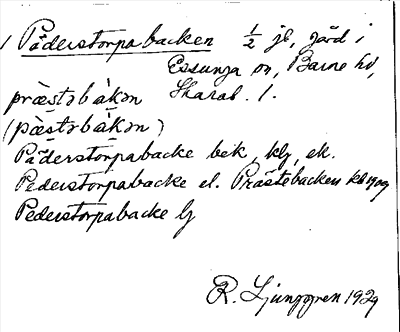 1 Päderstorpabacken ½ jb, gård i
Essunga sn, Barne hd,
præstəbákən Skarab. l.
(pæstəbákən)
Päderstorpabacke bek, klj, ek.
Pederstorpabacke el. Prästebacken kb 1909
Pederstorpabacke lj
R. Ljunggren 1929